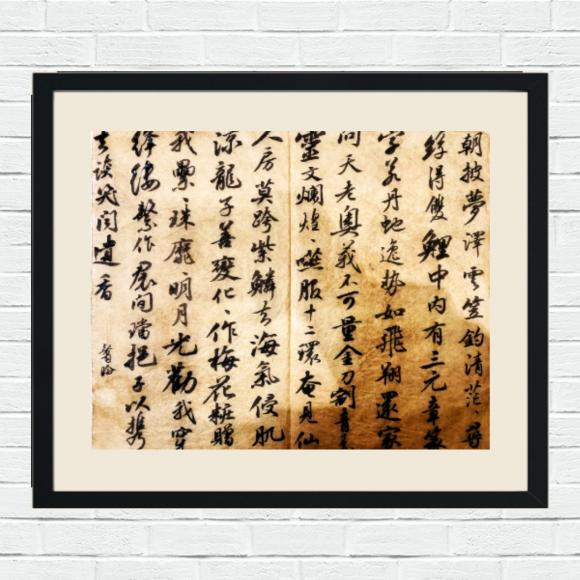 朝披夢澤雲笠釣清茫尋
絲得雙鯉中内有三元章篆
字若丹虵逸勢如飛翔還家
問天老奧義不可量金刀割青素
靈文爛煌、嚥服十二環奄見仙
人房莫跨紫鱗去海氣侵肌
涼龍子善變化、作梅花粧贈
我纍、珠靡、明月光勸我穿
絳縷繫作裙間璫挹子以携
去談笑聞遺香